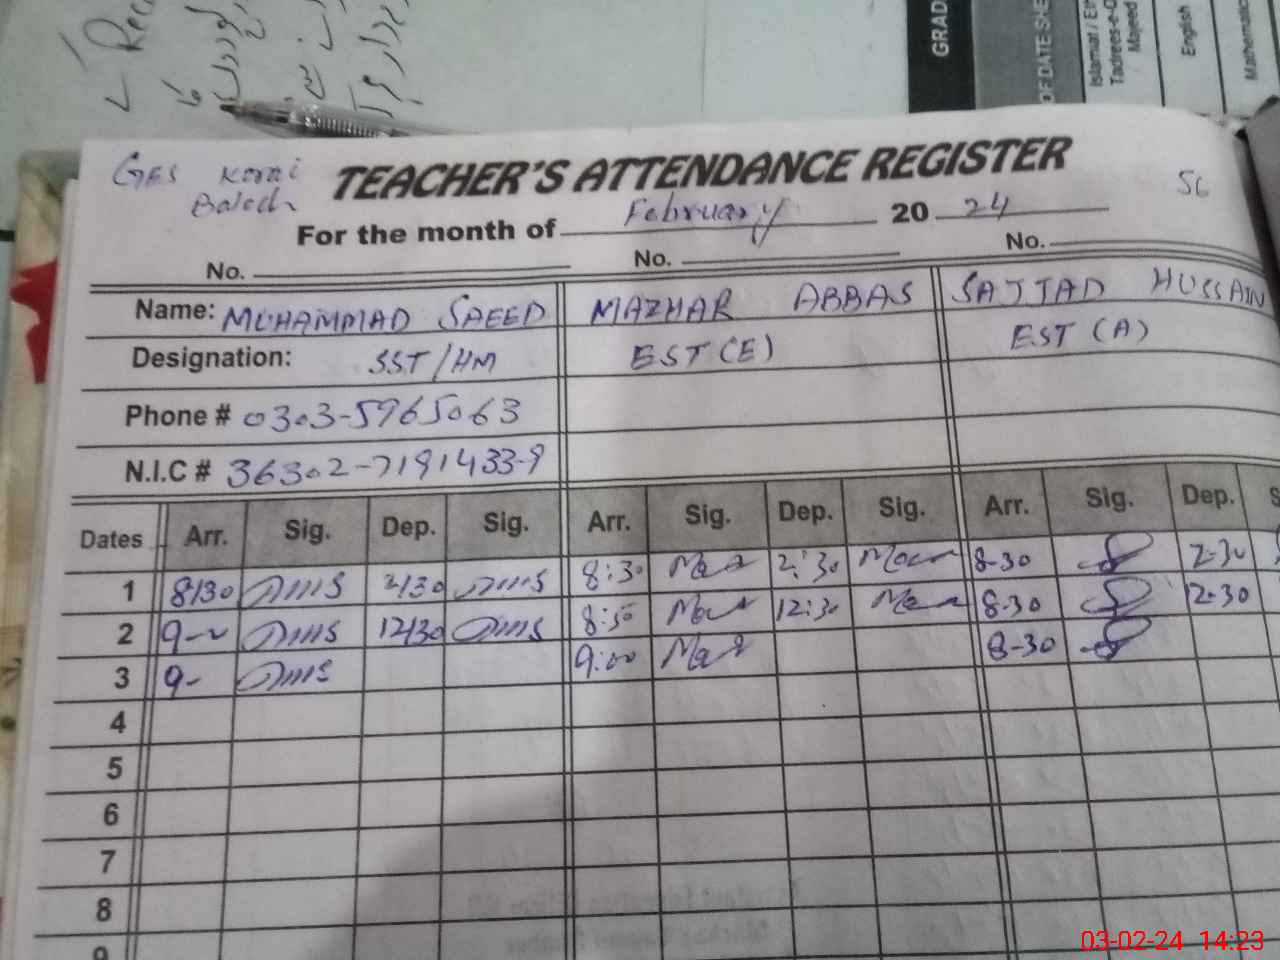 GRAD
OF DATE SHE
Islamiat / Eth
Tadrees-e-Q
Majeed
English
Mathematic
GES Korai
Baloch
TEACHER'S ATTENDANCE REGISTER
56
For the month of February 20 24
No. No. No.
Name: MUHAMMAD SAEED MAZHAR ABBAS SAJJAD HUSSAIN
Designation: SST/HM EST (E) EST (A)
Phone # 0303-5965063
N.I.C # 36302-7191433-9
Dates Arr. Sig. Dep. Sig. Arr. Sig. Dep. Sig. Arr. Sig. Dep. S
1 8/30 2/30 8:30 2:30 8-30 2-30
2 9- 12/30 8:50 12:30 8-30 12-30
3 9- 9:00 8-30
4
5
6
7
8
9
03-02-24 14:23